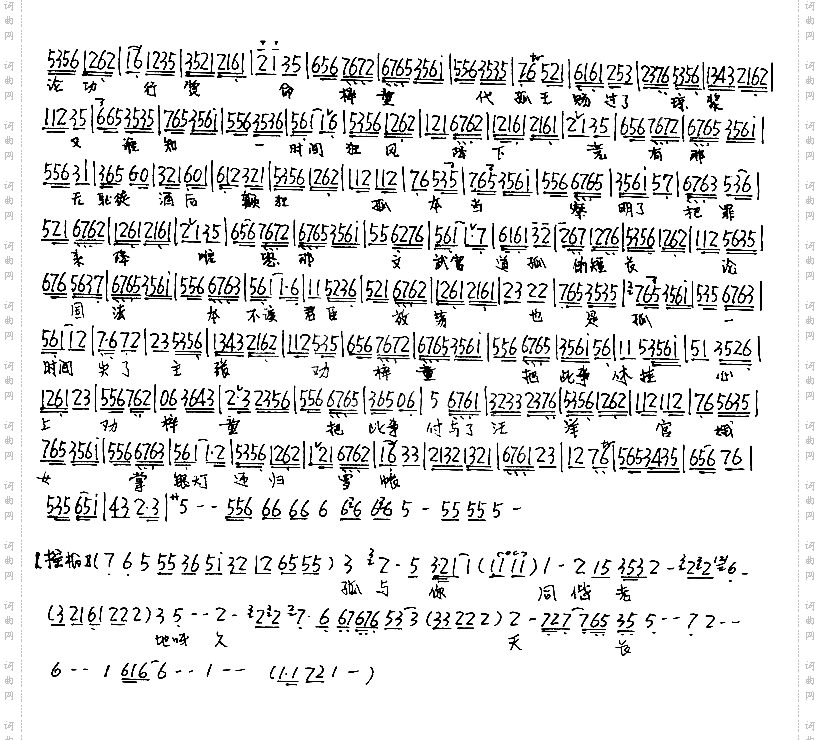 5356 1262 | 1 6 1235 | 3521 2161 | 2 1 35 | 656 7672 | 6765 3561 | 5563535 | 76 521 | 6161 253 | 2376 5356 | 1343 2162 |
论功 行赏 命梓童 代孤王 畅过了 琼浆
112 35 | 665 3535 | 765 3561 | 556 3536 | 561 1 6 | 5356 1262 | 121 6762 | 1261 2161 | 2 1 35 | 656 7672 | 6765 3561 |
又谁知 一时间 狂风 降下 竟有那
556 31 | 365 60 | 321 601 | 612 321 | 5356 1262 | 112 112 | 76 535 | 765 3561 | 556 6765 | 3561 57 | 6763 536 |
无耻徒 酒后 颠狂 孤本当 察明了 把罪
521 6762 | 1261 2161 | 2 1 35 | 656 7672 | 6765 3561 | 556 6276 | 561 1 7 | 6161 32 | 267 1276 | 5356 1262 | 112 5635 |
来降 唯恐那 文武官 道孤 的短长 论
676 5637 | 6765 3561 | 556 6763 | 561 1·6 | 11 5236 | 521 6762 | 1261 2161 | 23 22 | 765 3535 | 2 765 3561 | 535 6763 |
国法 本不该 君臣 放荡 也是孤 一
561 1 2 | 7·6 72 | 23 5356 | 1343 2162 | 112 535 | 656 7672 | 6765 3561 | 556 6765 | 3561 56 | 11 53561 | 51 3526 |
时间 失了 主张 劝梓童 把此事 休挂 心
1261 23 | 556 762 | 06 3643 | 2·3 2356 | 556 6765 | 365 06 | 5 6761 | 3233 2376 | 5356 1262 | 112 112 | 76 5635 |
上 劝梓童 把此事 付与了 汪洋 宫娥
765 3561 | 556 6763 | 561 1·2 | 5356 1262 | 121 6762 | 16 33 | 2132 1321 | 6761 23 | 12 76 | 5653435 | 656 76 |
女 掌银灯 还归 罗帐
535 651 | 43 2·3 | 5 - - 556 66 66 6 676 676 5 - 55 55 5 -
【摇板】( 7 6 5 55 36 51 32 12 65 55 ) 3 2 - 5 321 1 ( 11 11 ) 1 - 2 15 353 2 - 2 2 6 -
孤与你 同偕老
( 32161 222 ) 3 5 - - 2 - 2 2 7 · 6 67676 53 3 ( 33 222 ) 2 - 727 765 35 5 - - 7 2 - -
地呀久 天 长
6 - - 1 616 6 - - 1 - - ( 1·1 72 1 - )
词曲网